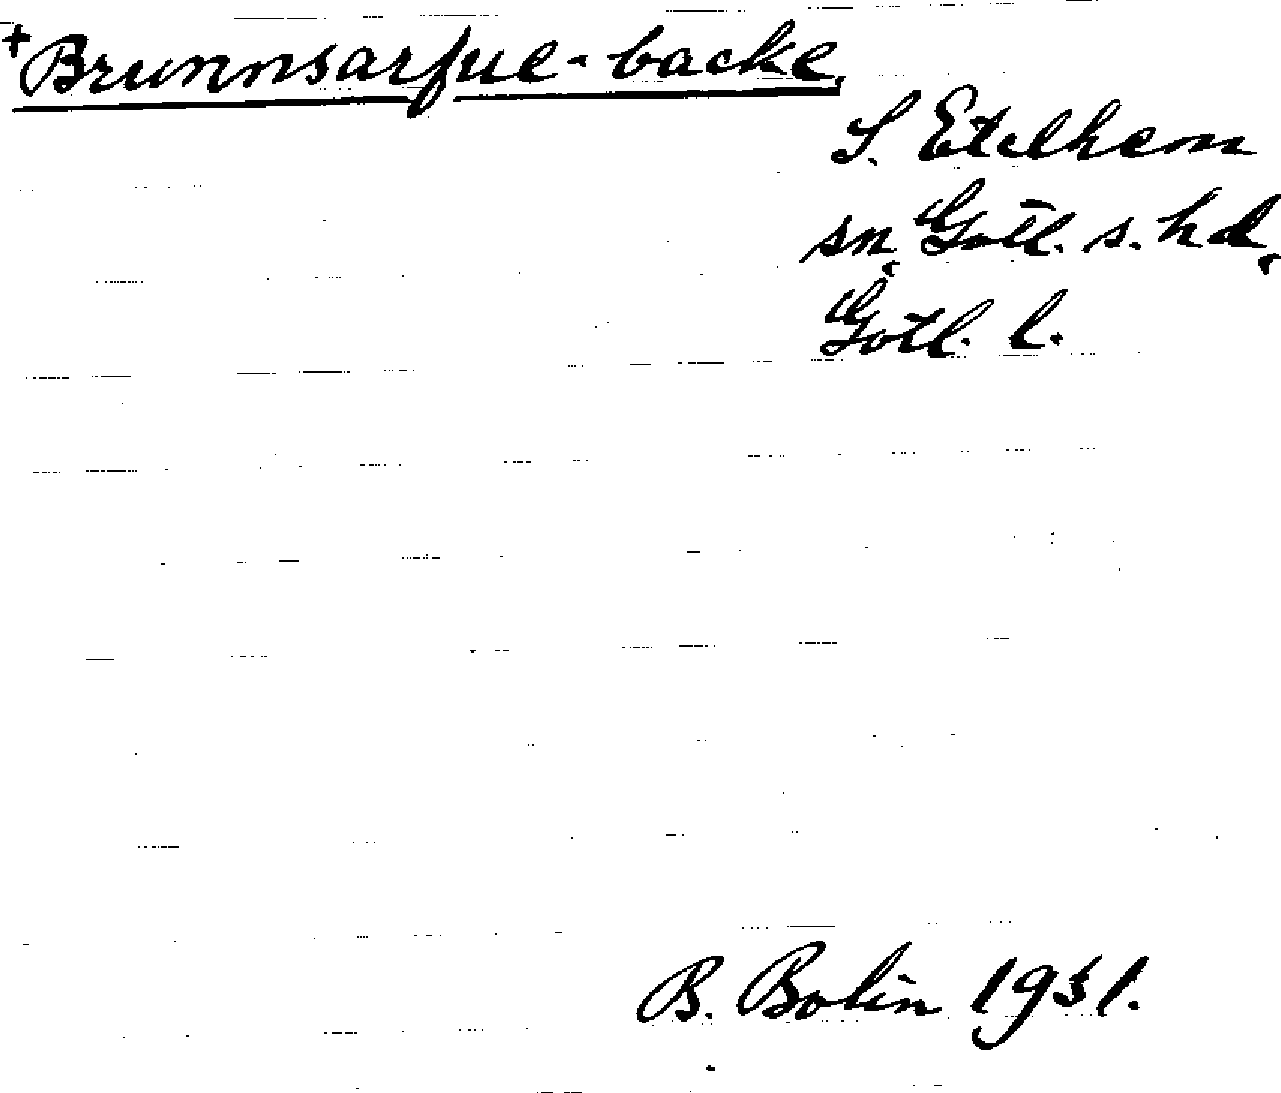 +Brunnsarfue-backe,
S. Etelhem
sn, Gotl. s. hd,
Gotl. l.
B. Bolin 1931.